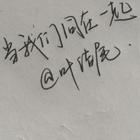 当我们同在一起
@叶浩尾.